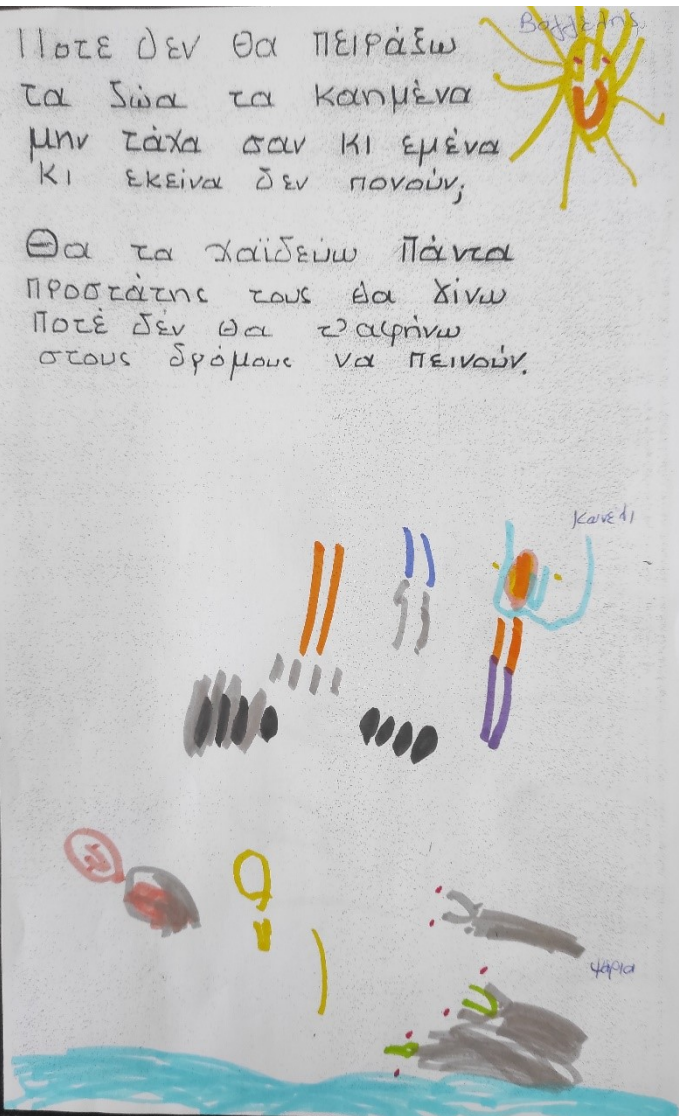 Βαγγέλης
Ποτε δεν θα πειράξω
τα ζώα τα καημένα
μην τάχα σαν κι εμένα
κι εκείνα δεν πονούν;
Θα τα χαϊδεύω πάντα
προστάτης τους θα γίνω
Ποτέ δέν θα τ' αφήνω
στους δρόμους να πεινούν.
Κανελι
ψάρια